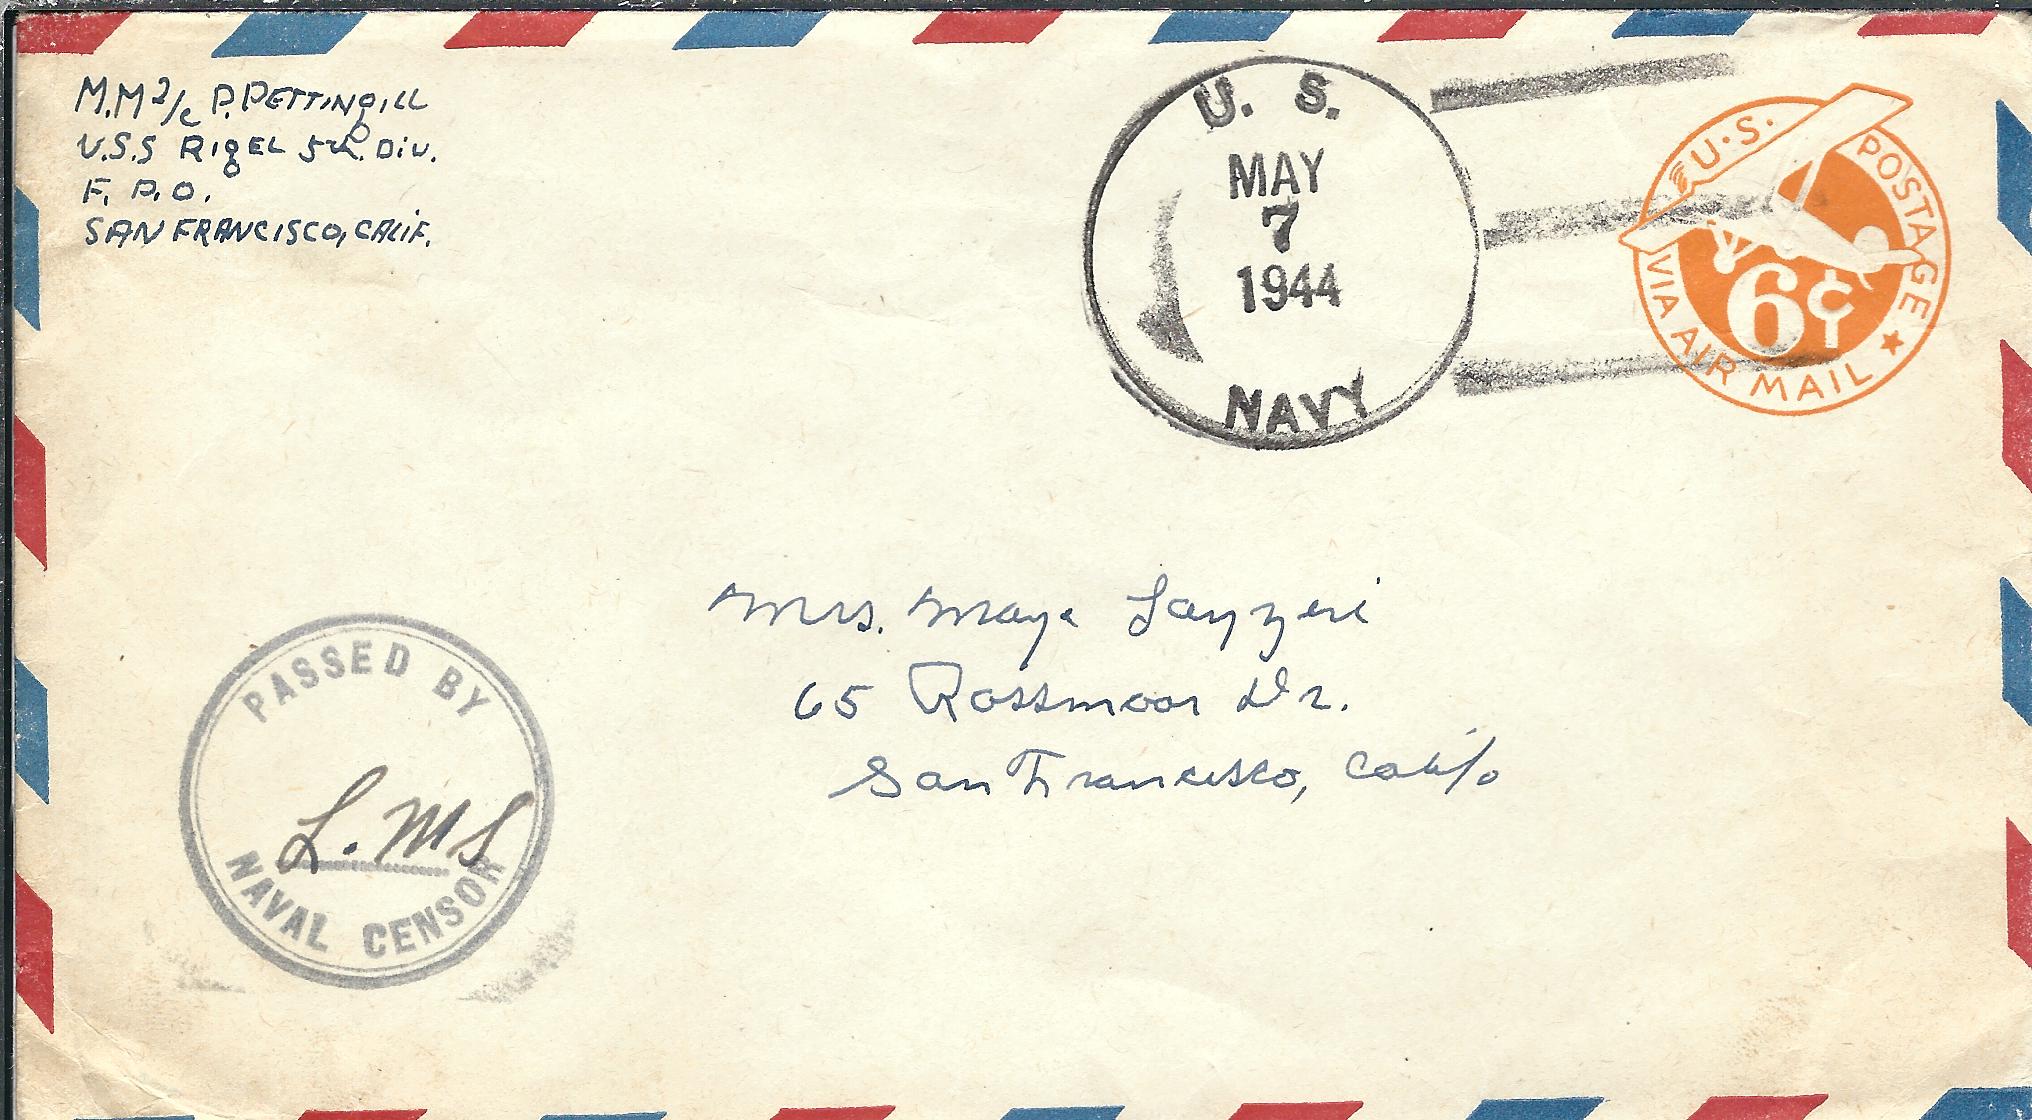 M.M 2/c P. PETTINGILL
U.S.S RIgEL 5th. DIV.
F. P. O.
SAN FRANCISCO, CALIF.
U. S.
MAY
7
1944
NAVY
U.S. POSTAGE
6¢
VIA AIR MAIL
Mrs. Maye
65 Rossmoor Dr.
San Francisco, Calif
PASSED BY
L. MS
NAVAL CENSOR